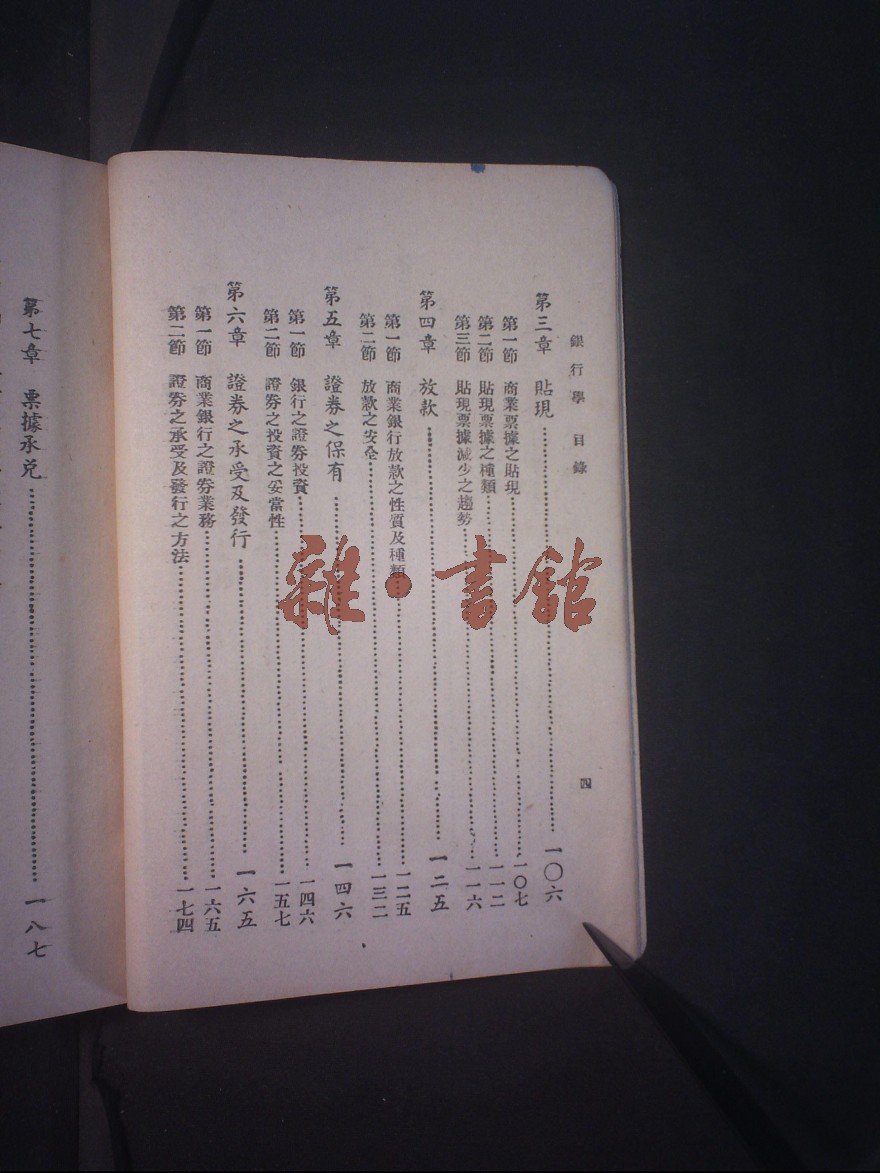 銀行學 目錄 四
第三章 貼現……一〇六
第一節 商業票據之貼現……一〇七
第二節 貼現票據之種類……一一二
第三節 貼現票據減少之趨勢……一一六
第四章 放款……一二五
第一節 商業銀行放款之性質及種類……一二五
第二節 放款之安全……一三二
第五章 證券之保有……一四六
第一節 銀行之證券投資……一四六
第二節 證券之投資之妥當性……一五七
第六章 證券之承受及發行……一六五
第一節 商業銀行之證券業務……一六五
第二節 證券之承受及發行之方法……一七四
第七章 票據承兌……一八七
雜·書館